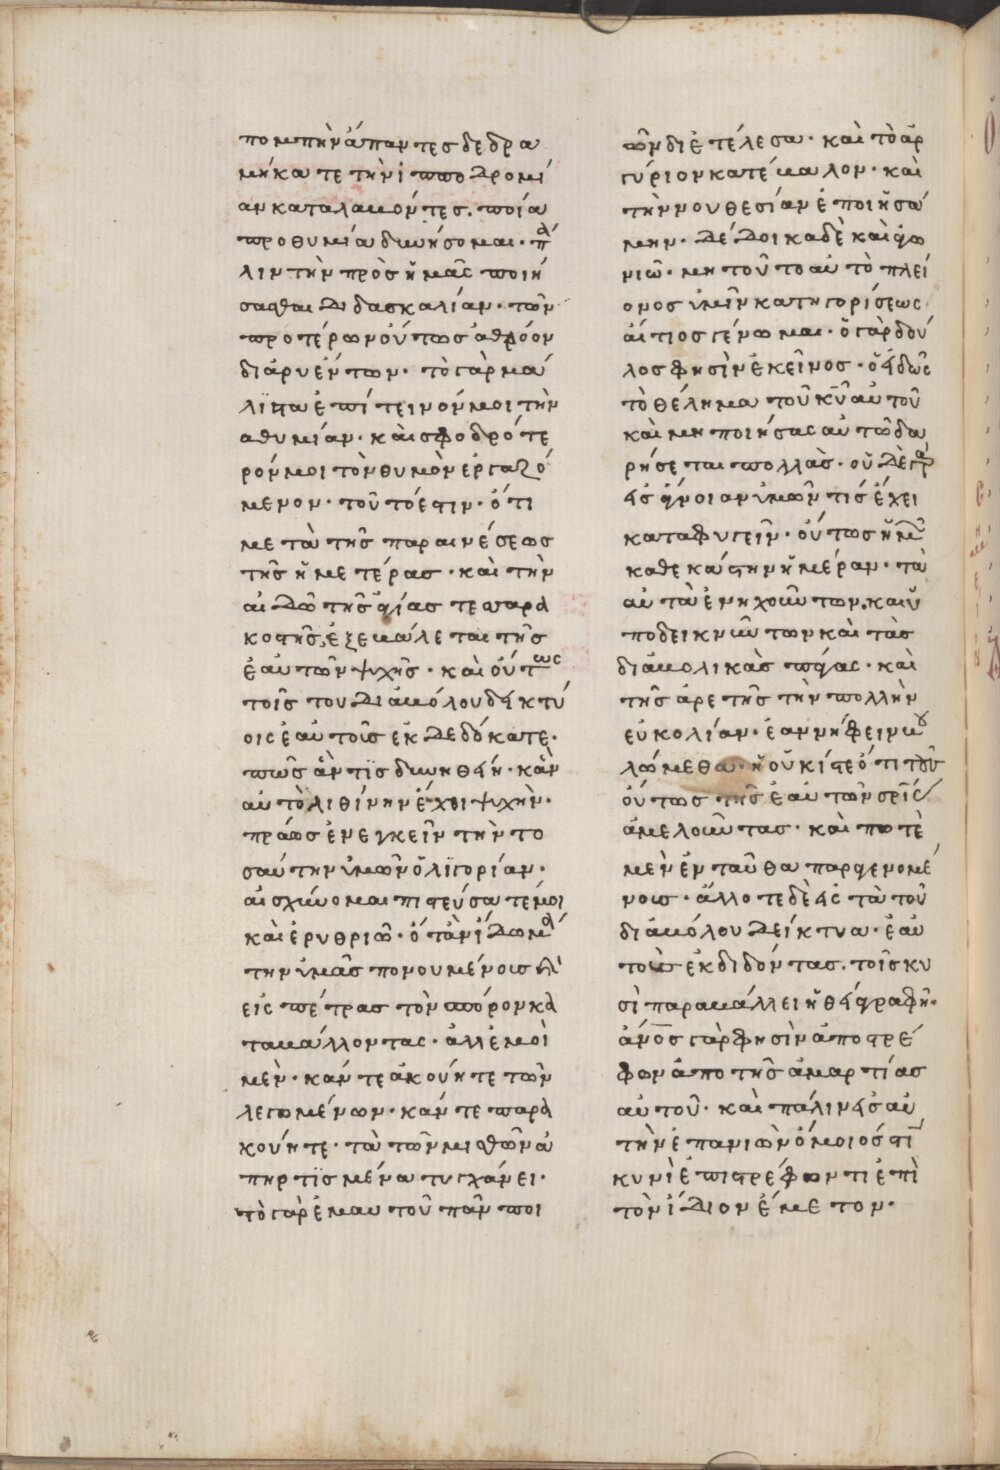 πομπὴν ἅπαντες δεδρα
μήκατε τὴν ἱπποδρομί
αν καταλαβόντες. ποία
προθυμία δυνήσομαι· πά
λιν τὴν πρὸς ἡμᾶς ποιή
σασθαι διδασκαλίαν· τῶν
προτέρων οὕτως ἁθρόον
διαρυέντων· τὸ γὰρ μά
λϊστα ἐπίτεινον μοι τὴν
αθυμίαν· καὶ σφοδρότε
ρόν μοι τὸν θυμὸν ἐργαζό
μενον· τοῦτό εστιν· ὅτι
μετὰ τῆς παραινέσεως
τῆς ἡμετέρας· καὶ τὴν
αιδῶ τῆς ἁγίας τεσσαρα
κοστῆς, ἐξεβάλεται τῆς
ἑαυτῶν ψυχῆς· καὶ οὕτως
τοῖς του διαβόλου δεικτύ
οις ἑαυτοῖς ἐκδεδόκατε·
πῶς ἄν τϊς δυνηθείη· κἂν
αὐτὸ λιθίνην ἔχοι ψυχὴν·
πράως ἐνεγκεῖν τὴν το
σαύτην ὑμῶν ὀλϊγορίαν·
αἰσχύνομαι πιστεύσατέ μοι
καὶ ἐρυθριῶ· ὅτὰν ἴδω μά
την ὑμᾶς πονουμένοις καὶ
εἰς πέτρας τὸν σπόρον κα
ταβάλλοντας· ἀλλ ἐμοὶ
μὲν· κἄν τε ἀκούητε τῶν
λεγωμένων· κάν τε παρα
κούητε· τὰ τῶν μισθῶν ἀ
πηρτϊσμένα τυγχάνει·
τὸ γὰρ ἐμαυτοῦ πᾶν ποι
ῶν διετέλεσα· καὶ τὸ ἀρ
γύριον κατέβαλον· καὶ
τὴν νουθεσίαν ἐποιησά
μην· δέδοικα δὲ καὶ φο
νιῶ· μη τοῦτο αὐτὸ πλεί
ονος ὑμῖν κατηγορίσεως
αἴτιος γένωμαι· ὁ γὰρ δοῦ
λος φησὶν ἐκεῖνος· ὁ εἰδὼς
τὸ θέλημα τοῦ κῡ αὐτοῦ
καὶ μη ποιήσας αὐτῶ δα
ρήσεται πολλὰς· οὐδὲ γὰρ
εἰς ἄγνοιαν ὑμῶν τίς ἔχει
καταφυγεῖν· οὕτως ἡμῶν
καθεκάστην ἡμέραν· τὰ
αὐτὰ ἐνηχούντων. καὶ ὑ
ποδεικνύντων καὶ τὰς
διαβολικὰς πάγας· καὶ
τῆς ἀρετῆς τὴν πολλὴν
εὐκολίαν· ἐαν νήφειν βου
λώμεθα· ἢ οὐκ ἴστε ὅτι τοὺς
οὕτως τῆς ἑαυτῶν σρίας
ἀμελοῦντας· καὶ ποτὲ
μὲν ἐνταῦθα παραγενομέ
νοις· ἄλλοτε δὲ εἰς τὰ τοῦ
διαβόλου δείκτυα· ἑαυ
τοὺς ἐκδιδόντας. τοῖς κυ
σὶ παραβάλλει ἡ θεία γραφή·
ἄνο̅ς γὰρ φησὶν ἀποστρέ
φων ἀπο τῆς ἁμαρτίας
αὐτοῦ· καὶ πάλιν εἰς αὐ
τὴν ἐπανιὼν ὅμοιός ἐστὶ
κυνὶ ἐπιστρέφωντι ἐπὶ
τὸν ἴδιον ἔμετον·